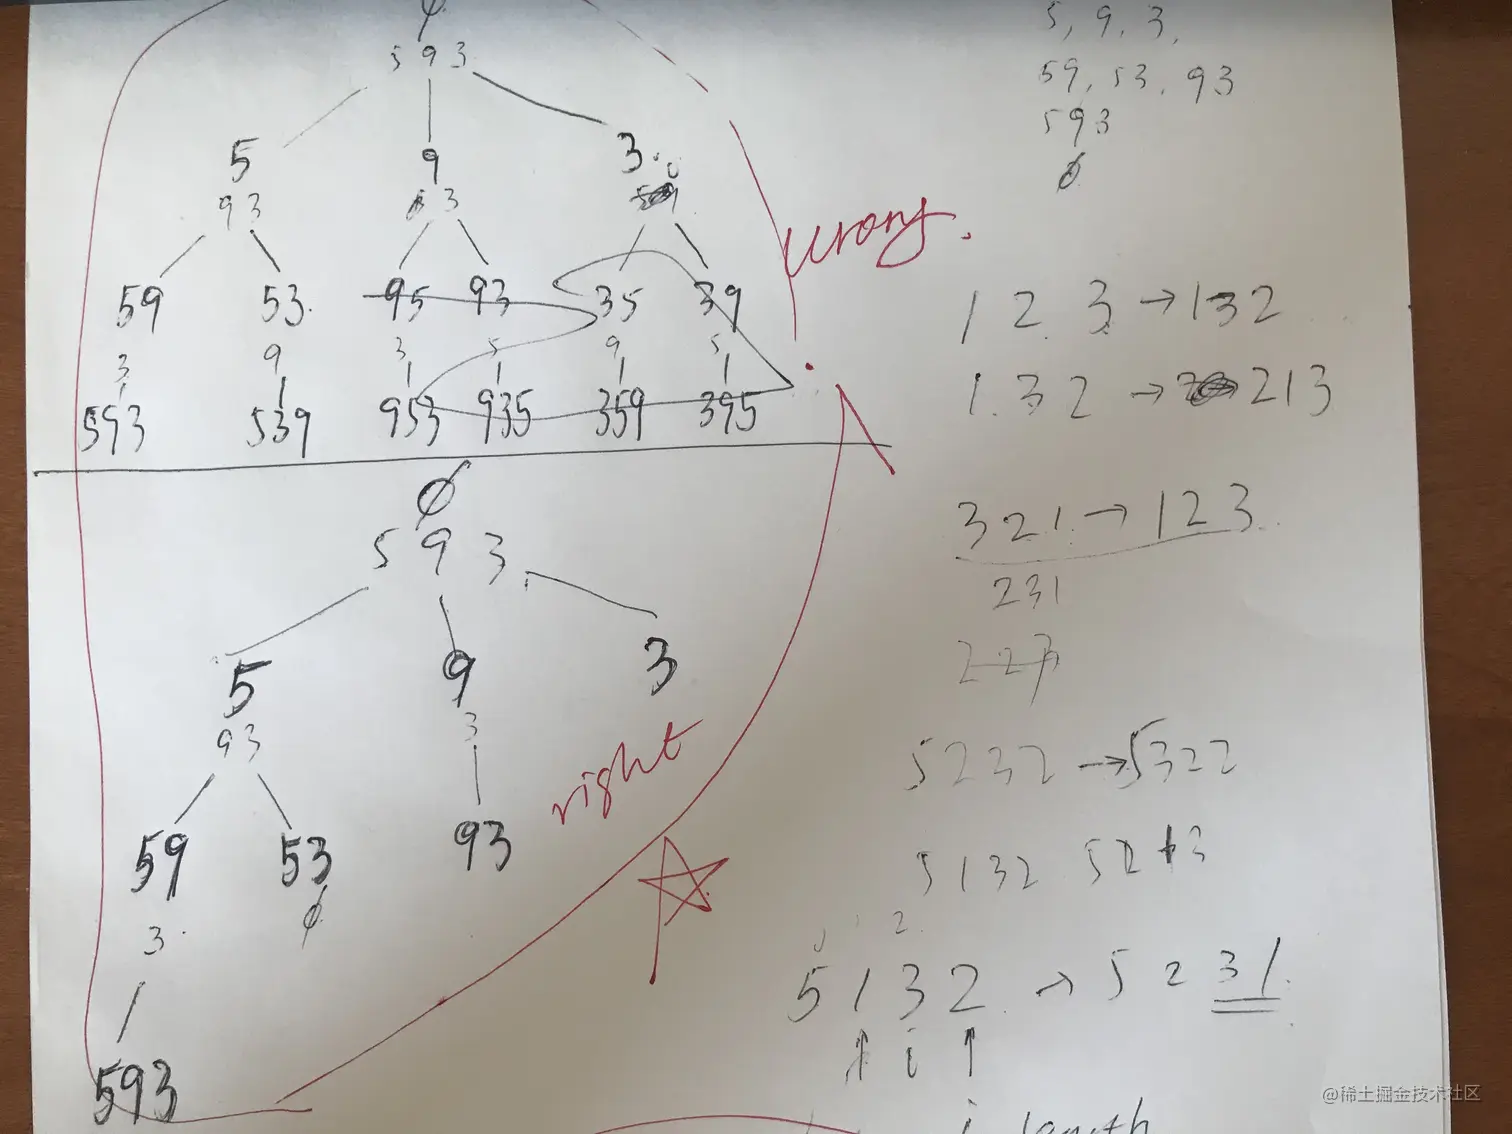 ∅
5 9 3
5 9 3
9 3 3
59 53 95 93 35 39
3 9 3 5 9 5
593 539 953 935 359 395
wrong.
∅
5 9 3
5 9 3
93 3
59 53 93
∅
3
593
right
5, 9, 3,
59, 53, 93
593
∅
1 2 3 → 132
1 3 2 → 213
321 → 123
231
223
5232 → 5322
5132 52 13
2
5 1 3 2 → 5 2 3 1
↑ i ↑
i length
@稀土掘金技术社区